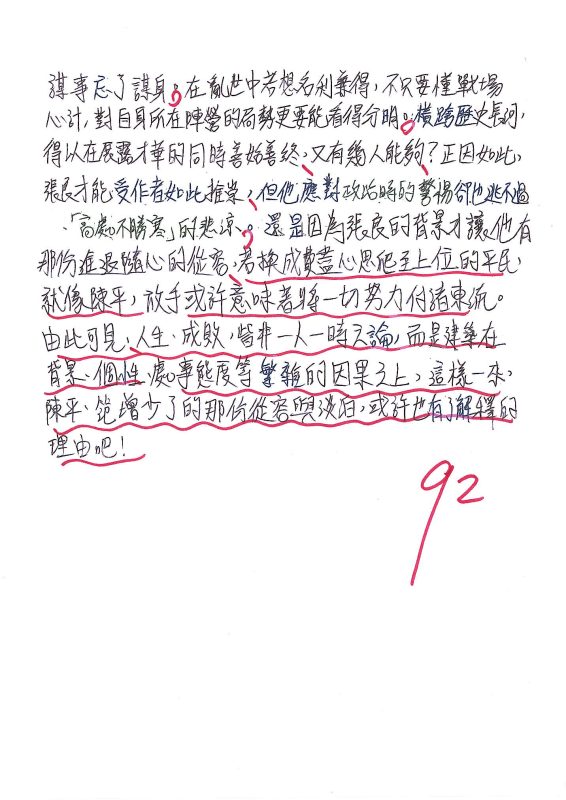 謀事忘了謀身。在亂世中若想名利兼得，不只要懂戰場
心計，對自身所在陣營的局勢更要能看得分明。橫跨歷史長河，
得以在展露才華的同時善始善終，又有幾人能夠？正因如此，
張良才能受作者如此推崇，但他應對政治時的警惕卻也逃不過
「高處不勝寒」的悲涼。還是因為張良的背景才讓他有
那份進退隨心的從容，若換成費盡心思爬至上位的平民，
就像陳平，放手或許意味著將一切努力付諸東流。
由此可見，人生、成敗，皆非一人一時之論，而是建築在
背景、個性、處事態度等繁雜的因果之上，這樣一來，
陳平、范增少了的那份從容與淡泊，或許也有了解釋的
理由吧！
92